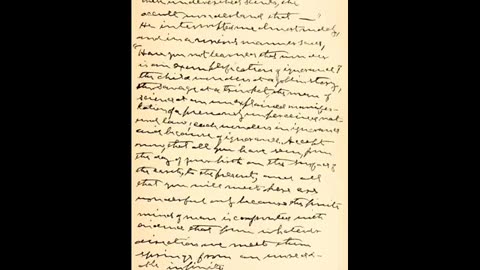 occult understand that —"
He interrupted me almost rudely,
and in a serious manner said,
"Have you not learned that wonder
is an exemplification of ignorance?
the child wonders at a goblin story,
the savage at a trinket, the man of
science at an unexplained manifes-
tation of a previously unperceived nat-
ural law; each wonders in ignorance
and because of ignorance. Accept
now, that all you have seen, from
the day of your birth on the surface of
the earth, to the present, and all
that you will meet here are
wonderful only because the finite
mind of man is
evidence that from whatever
direction we meet them
springs from an unreach-
able infinite